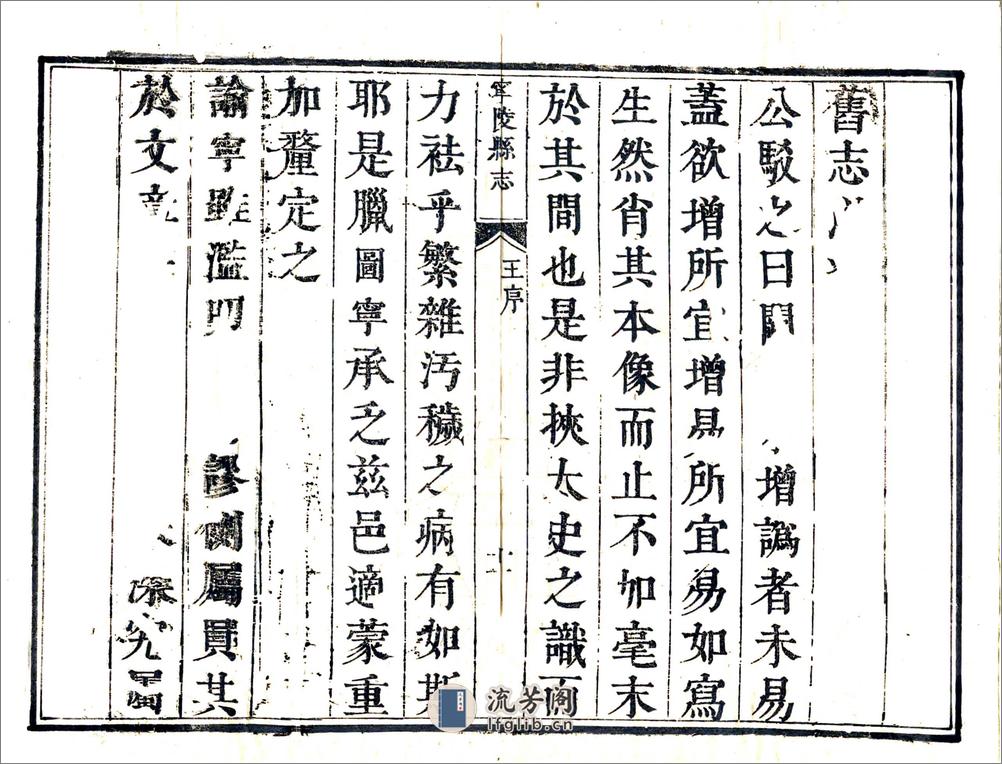 舊志
公駁之曰閱增譌者未易
蓋欲增所宜增易所宜易如寫
生然肖其本像而止不加毫末
於其間也是非挾太史之識而
寧陵縣志
王序
十一
力祛乎繁雜汚穢之病有如斯
耶是臘圖寧承乏茲邑適蒙重
加釐定之
諭寧雖濫叨謬側屬員其
於文
流芳阁
lfglib.cn